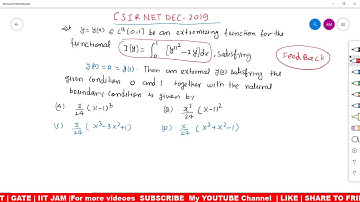 CSIR NET DEC-2019
let y=y(x) ∈ C⁴[0,1] be an extremizing function for the
functional I[y]=∫₀¹ [(y'')²-2y]dx, satisfying
FeedBack
y(0)=0=y(1). Then an extremal y(x) satisfying the
given condition 0 and 1 together with the natural
boundary condition is given by
(A) x/24 (x-1)³ (B) x²/24 (x-1)²
(C) x/24 (x³-3x²+1) (D) x/24 (x³+x²-1)
T | GATE | IIT JAM |For more videoes SUBSCRIBE My YOUTUBE Channel | LIKE | SHARE TO FRI